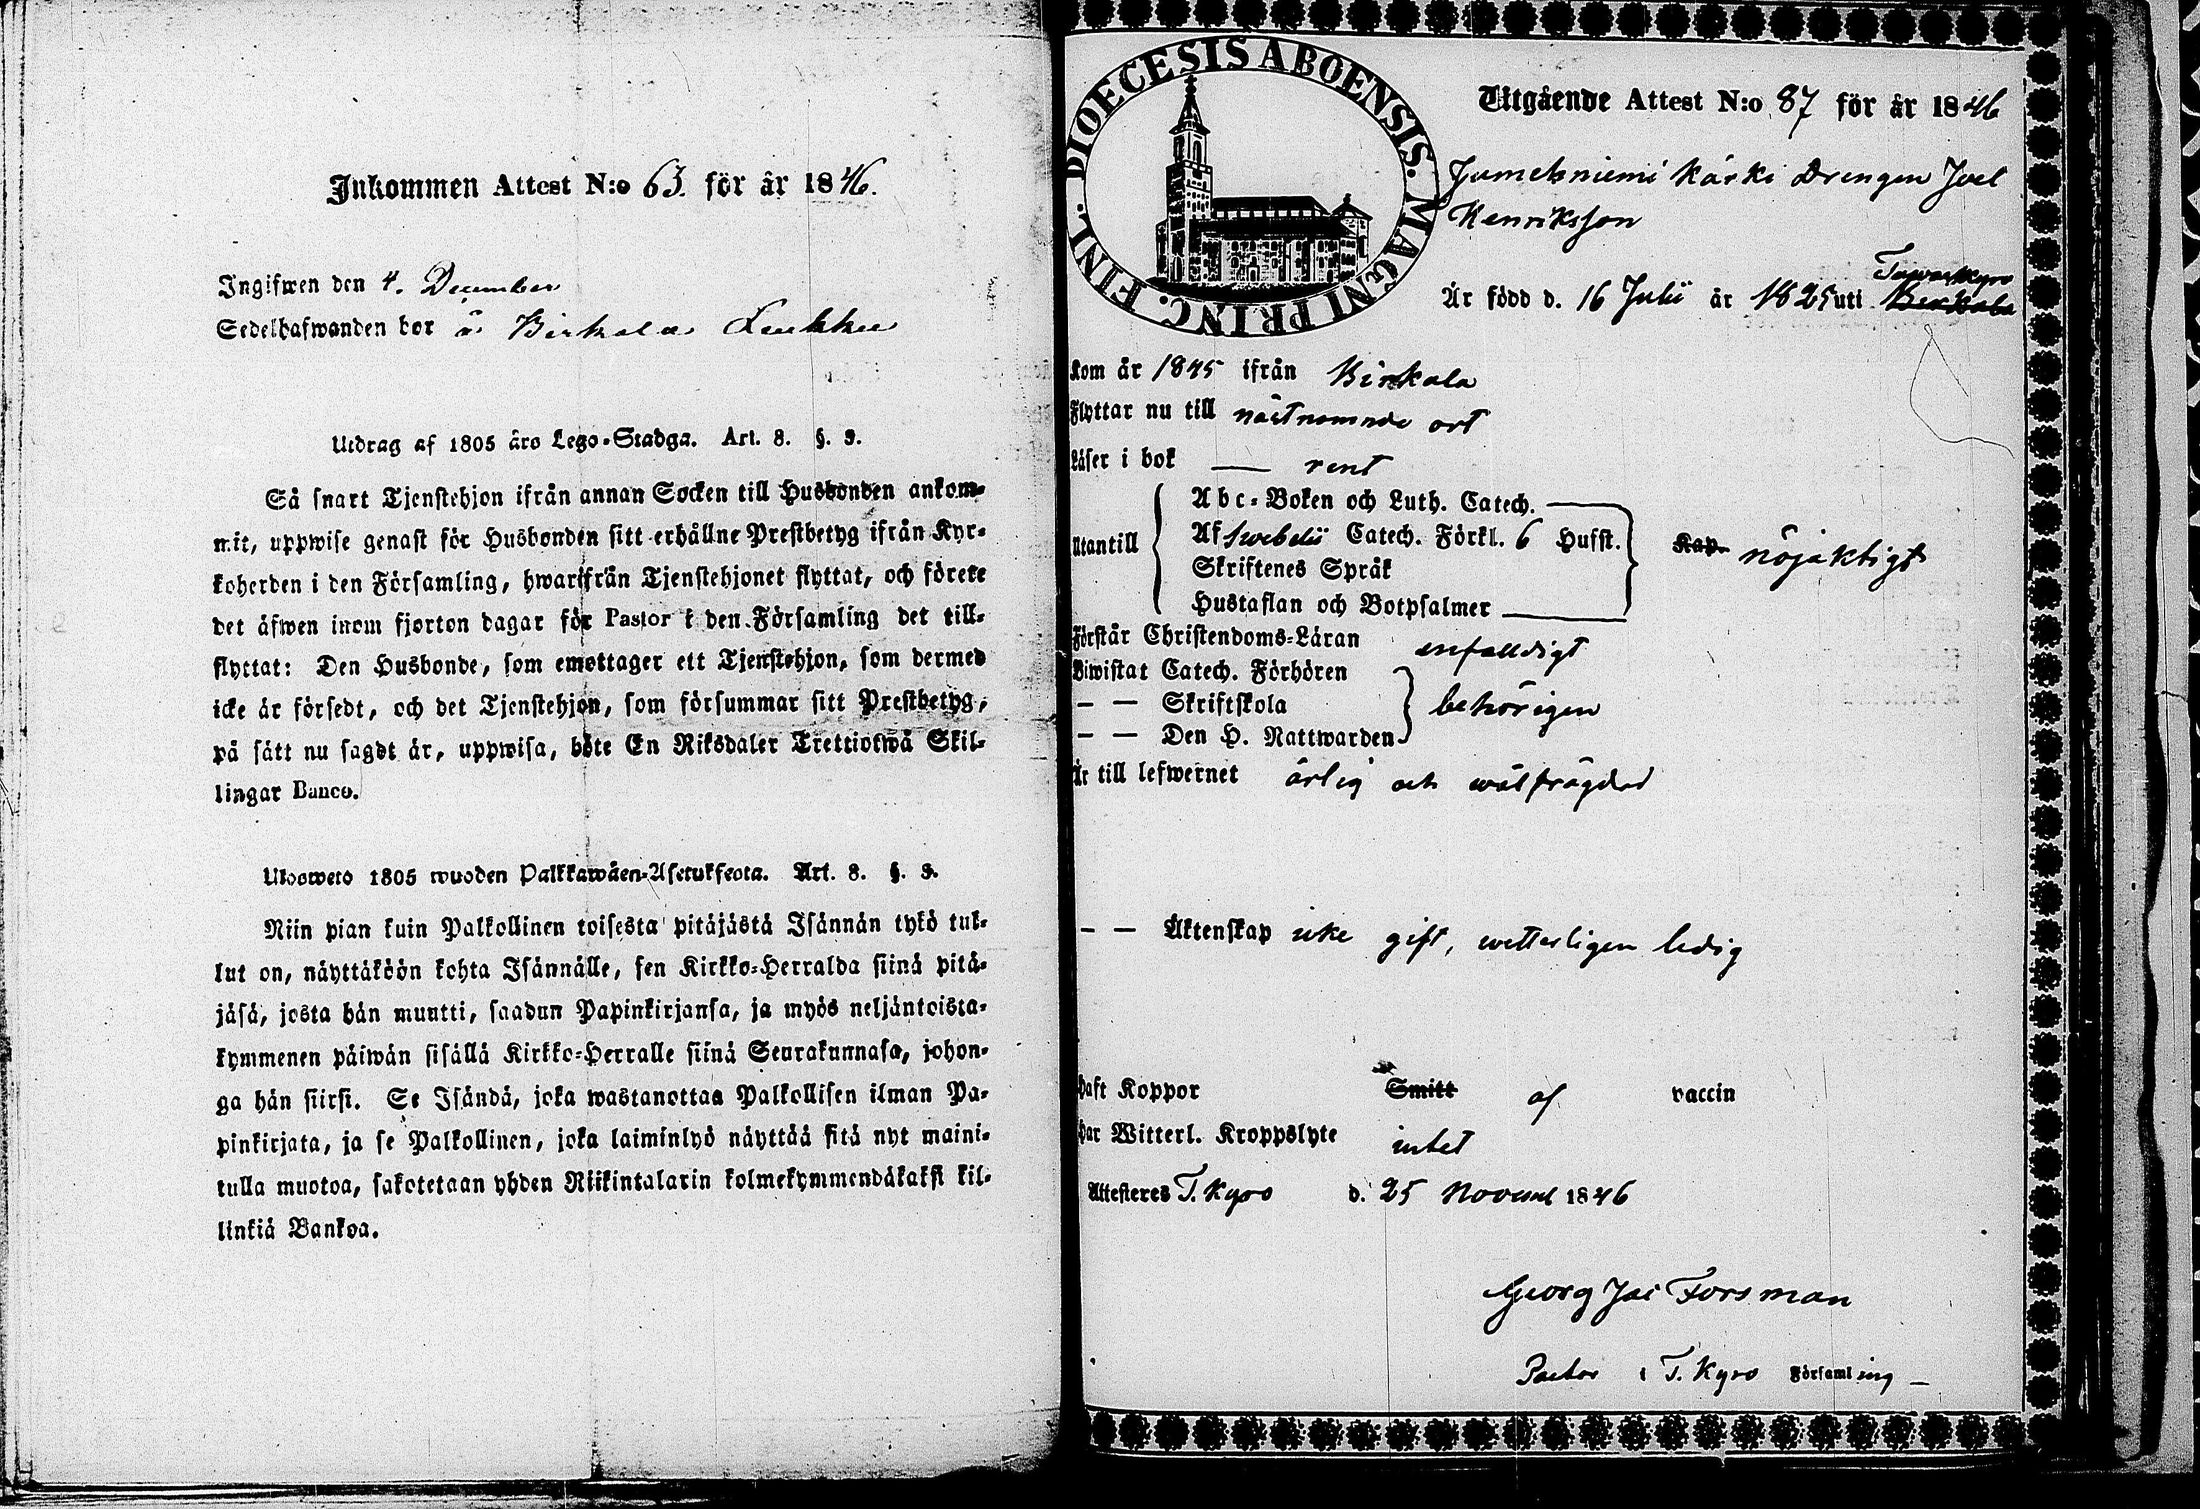 Inkommen Attest N:o 63. för år 1846.
Ingifwen den 4. December
Sedelhafwanden bor å Birkala Lukku
Utdrag af 1805 års Lego-Stadga. Art. 8. §. 9.
Så snart Tjenstehjon ifrån annan Socken till Husbonden ankom-
mit, uppwise genast för Husbonden sitt erhållne Prestbetyg ifrån Kyr-
koherden i den Församling, hwarifrån Tjenstehjonet flyttat, och förete
det äfwen inom fjorton dagar för Pastor i den Församling det till-
flyttat: Den Husbonde, som emottager ett Tjenstehjon, som dermed
icke är försedt, och det Tjenstehjon, som försummar sitt Prestbetyg,
på sätt nu sagdt är, uppwisa, böte En Riksdaler Trettiotwå Skil-
lingar Banco.
Uloswето 1805 wuoden Palkkawäen-Asetuksesta. Art. 8. §. 9.
Niin pian kuin Palkollinen toisesta pitäjästä Isännän tykö tul-
lut on, näyttäköön kohta Isännälle, sen Kirkko-Herralda siinä pitä-
jäsä, josta hän muutti, saadun Papinkirjansa, ja myös neljäntoista-
kymmenen päiwän sisällä Kirkko-Herralle siinä Seurakunnasa, johon-
ga hän siirsi. Se Isändä, joka wastanottaa Palkollisen ilman Pa-
pinkirjata, ja se Palkollinen, joka laiminlyö näyttää sitä nyt maini-
tulla muotoa, sakotetaan yhden Riikintalarin kolmekymmendäkaksi kil-
linkiä Bankoa.
FINL. DIOECESIS ABOENSIS. MAGNI PRINC.
Utgående Attest N:o 87 för år 1846
Jumesniemi Kärki Drengen Joel
Henriksson
Tawastkyro
Är född d. 16 Julii år 1825 uti Birkala
Kom år 1845 ifrån Birkala
Flyttar nu till nästnämnde ort
Läser i bok — rent
Utantill
Abc-Boken och Luth. Catech.
Af Swebelii Catech. Förkl. 6 Hufst.
Kap. nöjaktigt
Skriftenes Språk
Hustaflan och Botpsalmer
Förstår Christendoms-Läran enfaldigt
Biwistat Catech. Förhören
— — Skriftskola behörigen
— — Den H. Nattwarden
Är till lefwernet ärlig och wälfrägdad
— — Äktenskap icke gift, wetterligen ledig
Haft Koppor Smitt af vaccin
Har Witterl. Kroppslyte intet
Attesteres T. Kyro d. 25 Novemb 1846
Georg Jac Forsman
Pastor i T. Kyro Församling —